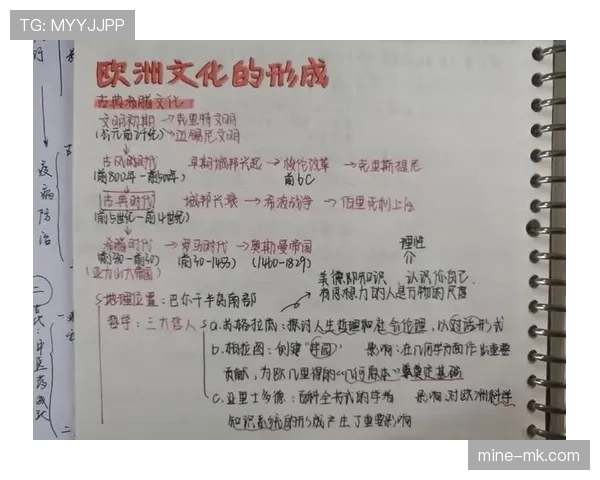 TG: MYYJJPP
欧洲文化的形成
古典希腊文化
文明初期→克里特文明
(公元前2千纪)→迈锡尼文明
古风时代 早期城邦兴起→梭伦改革→克里斯提尼
(前800年-前500年) 前6C
古典时代 城邦兴衰→希波战争→伯里克利上台
(前5世纪-前4世纪)
希腊时代→罗马时代→奥斯曼帝国 理性
(前30) (前30-1453) (1460-1829) 个
(亚力山大帝国) 美德即知识 认识你自己.
有思想力的人是万物的尺度
地理位置: 巴尔干半岛南部
哲学: 三大哲人 a.苏格拉底: 探讨人生哲理和 伦理, 以对话形式
b.柏拉图: 创建"学园" 影响: 在几何学方面作出重要
贡献, 为欧几里得的《几何原本》奠定基础
c.亚里士多德: 百科全书式的学者 影响: 对欧洲科学
知识系统的形成产生了重要影响
疫病防治
二
mine-mk.com